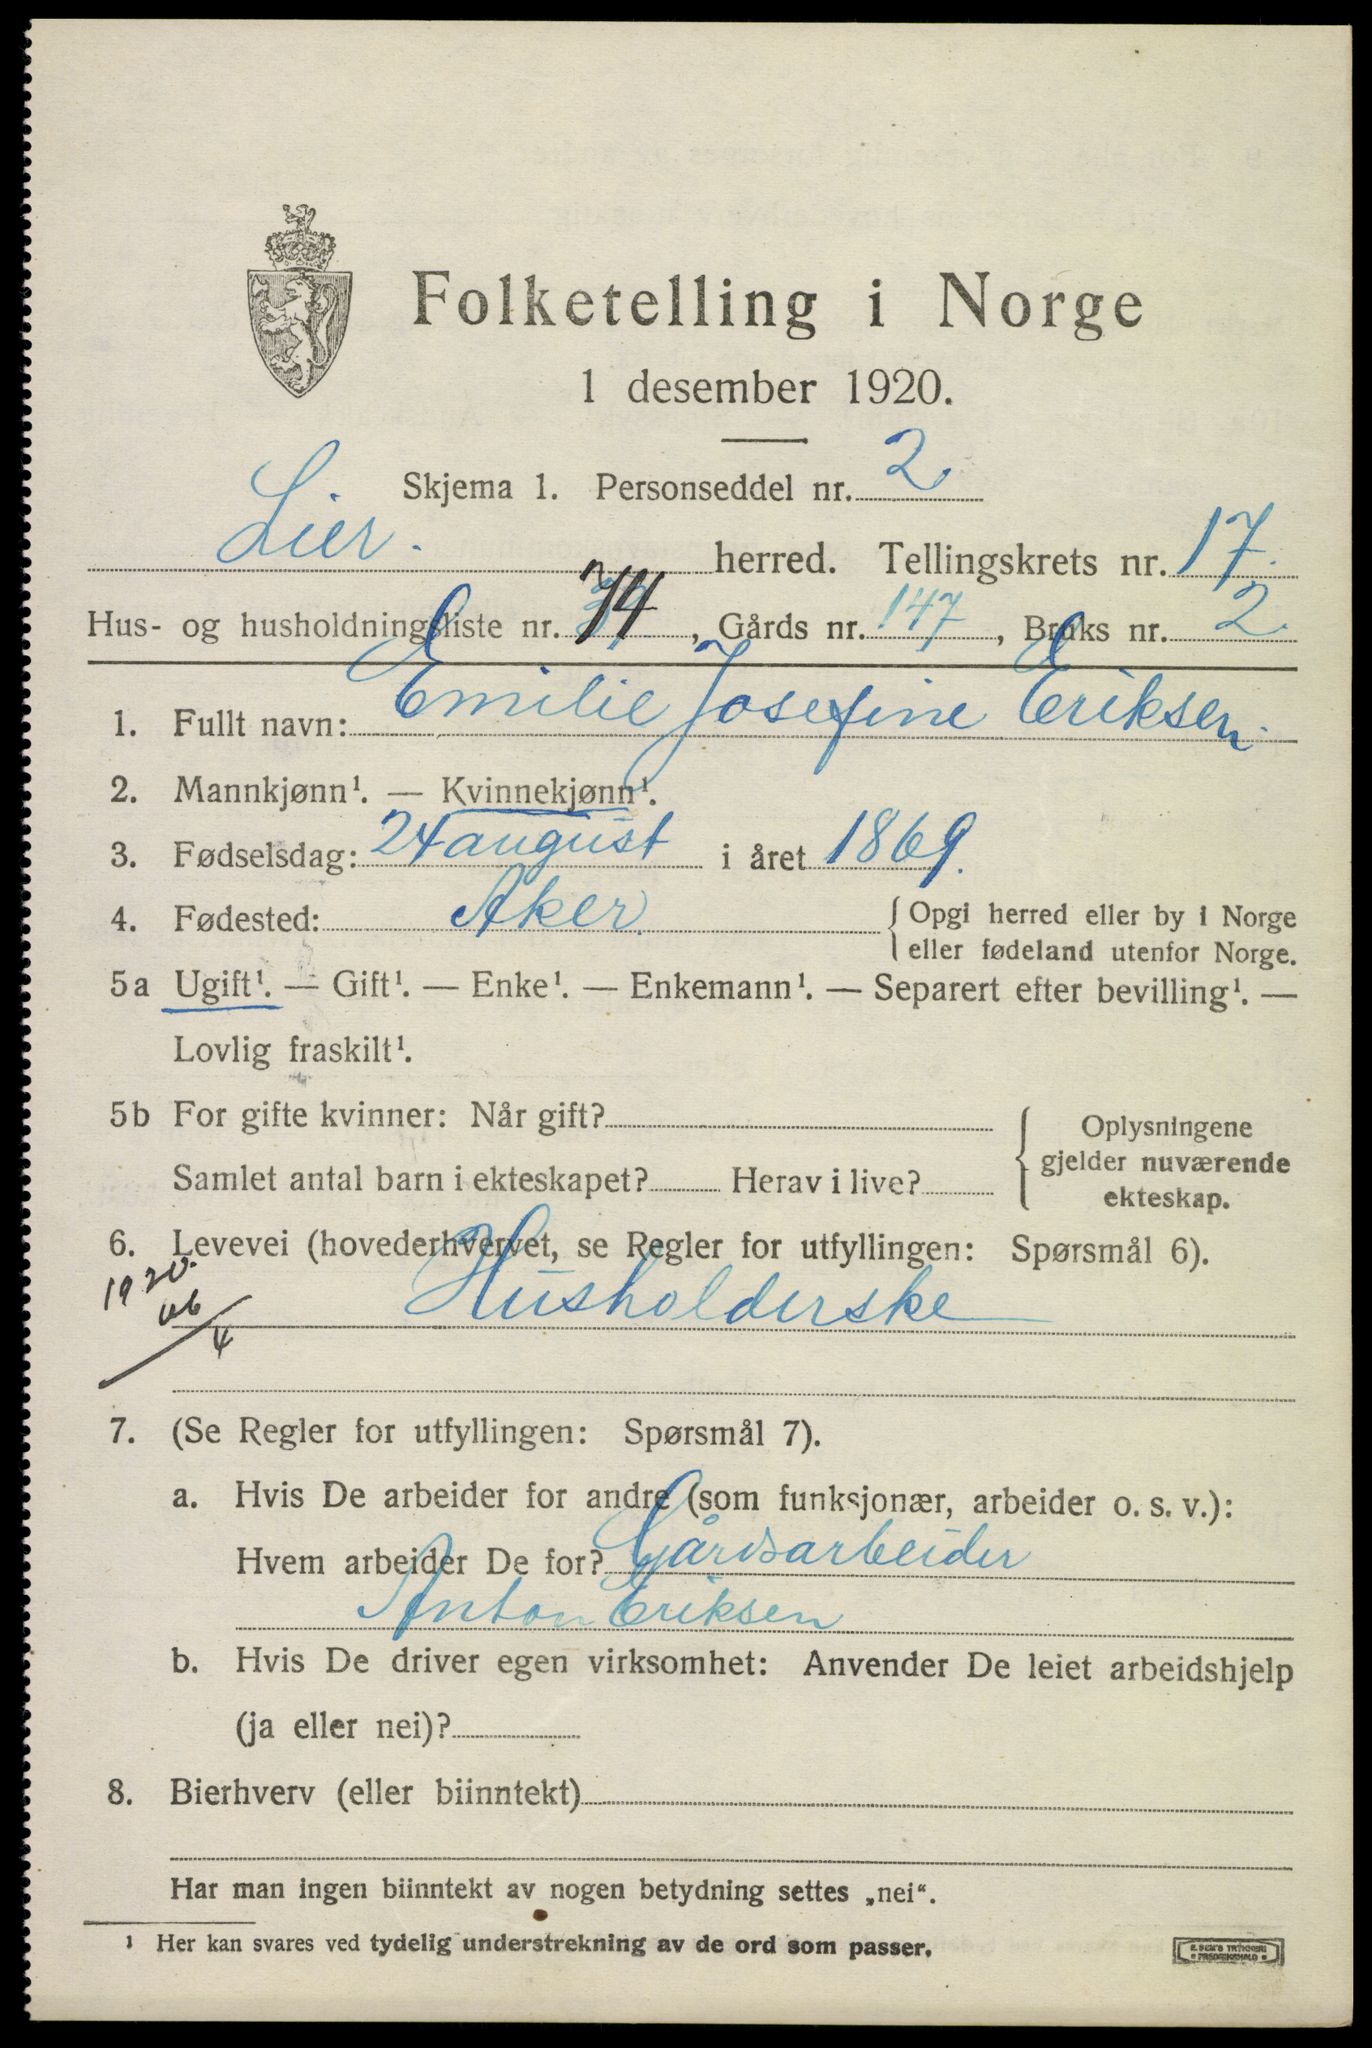 Folketelling i Norge
1 desember 1920.
Skjema 1. Personseddel nr. 2
Lier. herred. Tellingskrets nr. 17.
Hus- og husholdningsliste nr. 74, Gårds nr. 147, Bruks nr. 2.
1. Fullt navn: Emilie Josefine Eriksen.
2. Mannkjønn¹. — Kvinnekjønn¹.
3. Fødselsdag: 24 august i året 1869.
4. Fødested: Aker. { Opgi herred eller by i Norge
eller fødeland utenfor Norge.
5a Ugift¹. — Gift¹. — Enke¹. — Enkemann¹. — Separert efter bevilling¹. —
Lovlig fraskilt¹.
5b For gifte kvinner: Når gift? { Oplysningene
gjelder nuværende
Samlet antal barn i ekteskapet? Herav i live? ekteskap.
6. Levevei (hovederhvervet, se Regler for utfyllingen: Spørsmål 6).
1920.
Husholderske
4
7. (Se Regler for utfyllingen: Spørsmål 7).
a. Hvis De arbeider for andre (som funksjonær, arbeider o. s. v.):
Hvem arbeider De for? Gårdsarbeider
Anton Eriksen
b. Hvis De driver egen virksomhet: Anvender De leiet arbeidshjelp
(ja eller nei)?
8. Bierhverv (eller biinntekt)
Har man ingen biinntekt av nogen betydning settes „nei“.
¹ Her kan svares ved tydelig understrekning av de ord som passer.
E. SEM'S TRYKKERI
FREDRIKSHALD